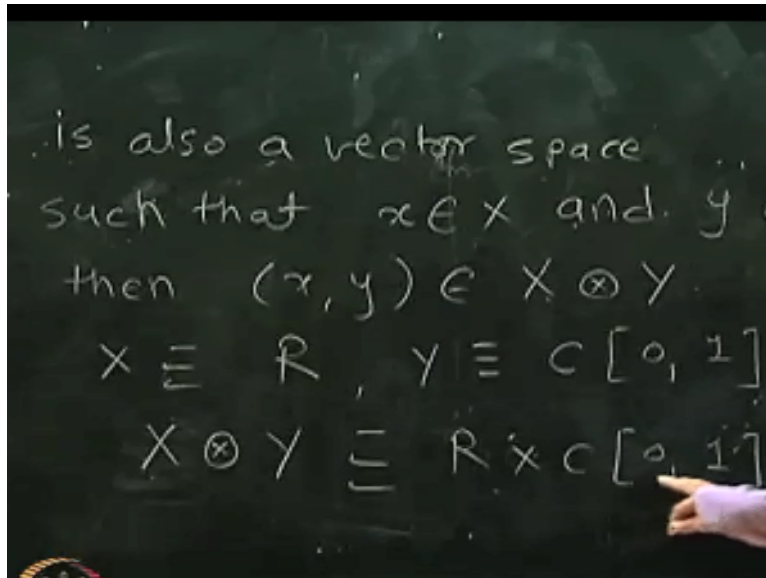 is also a vector space
such that x ∈ X and y
then (x, y) ∈ X ⊗ Y
X ≡ R, Y ≡ C[0, 1]
X ⊗ Y ≡ R × C[0, 1]